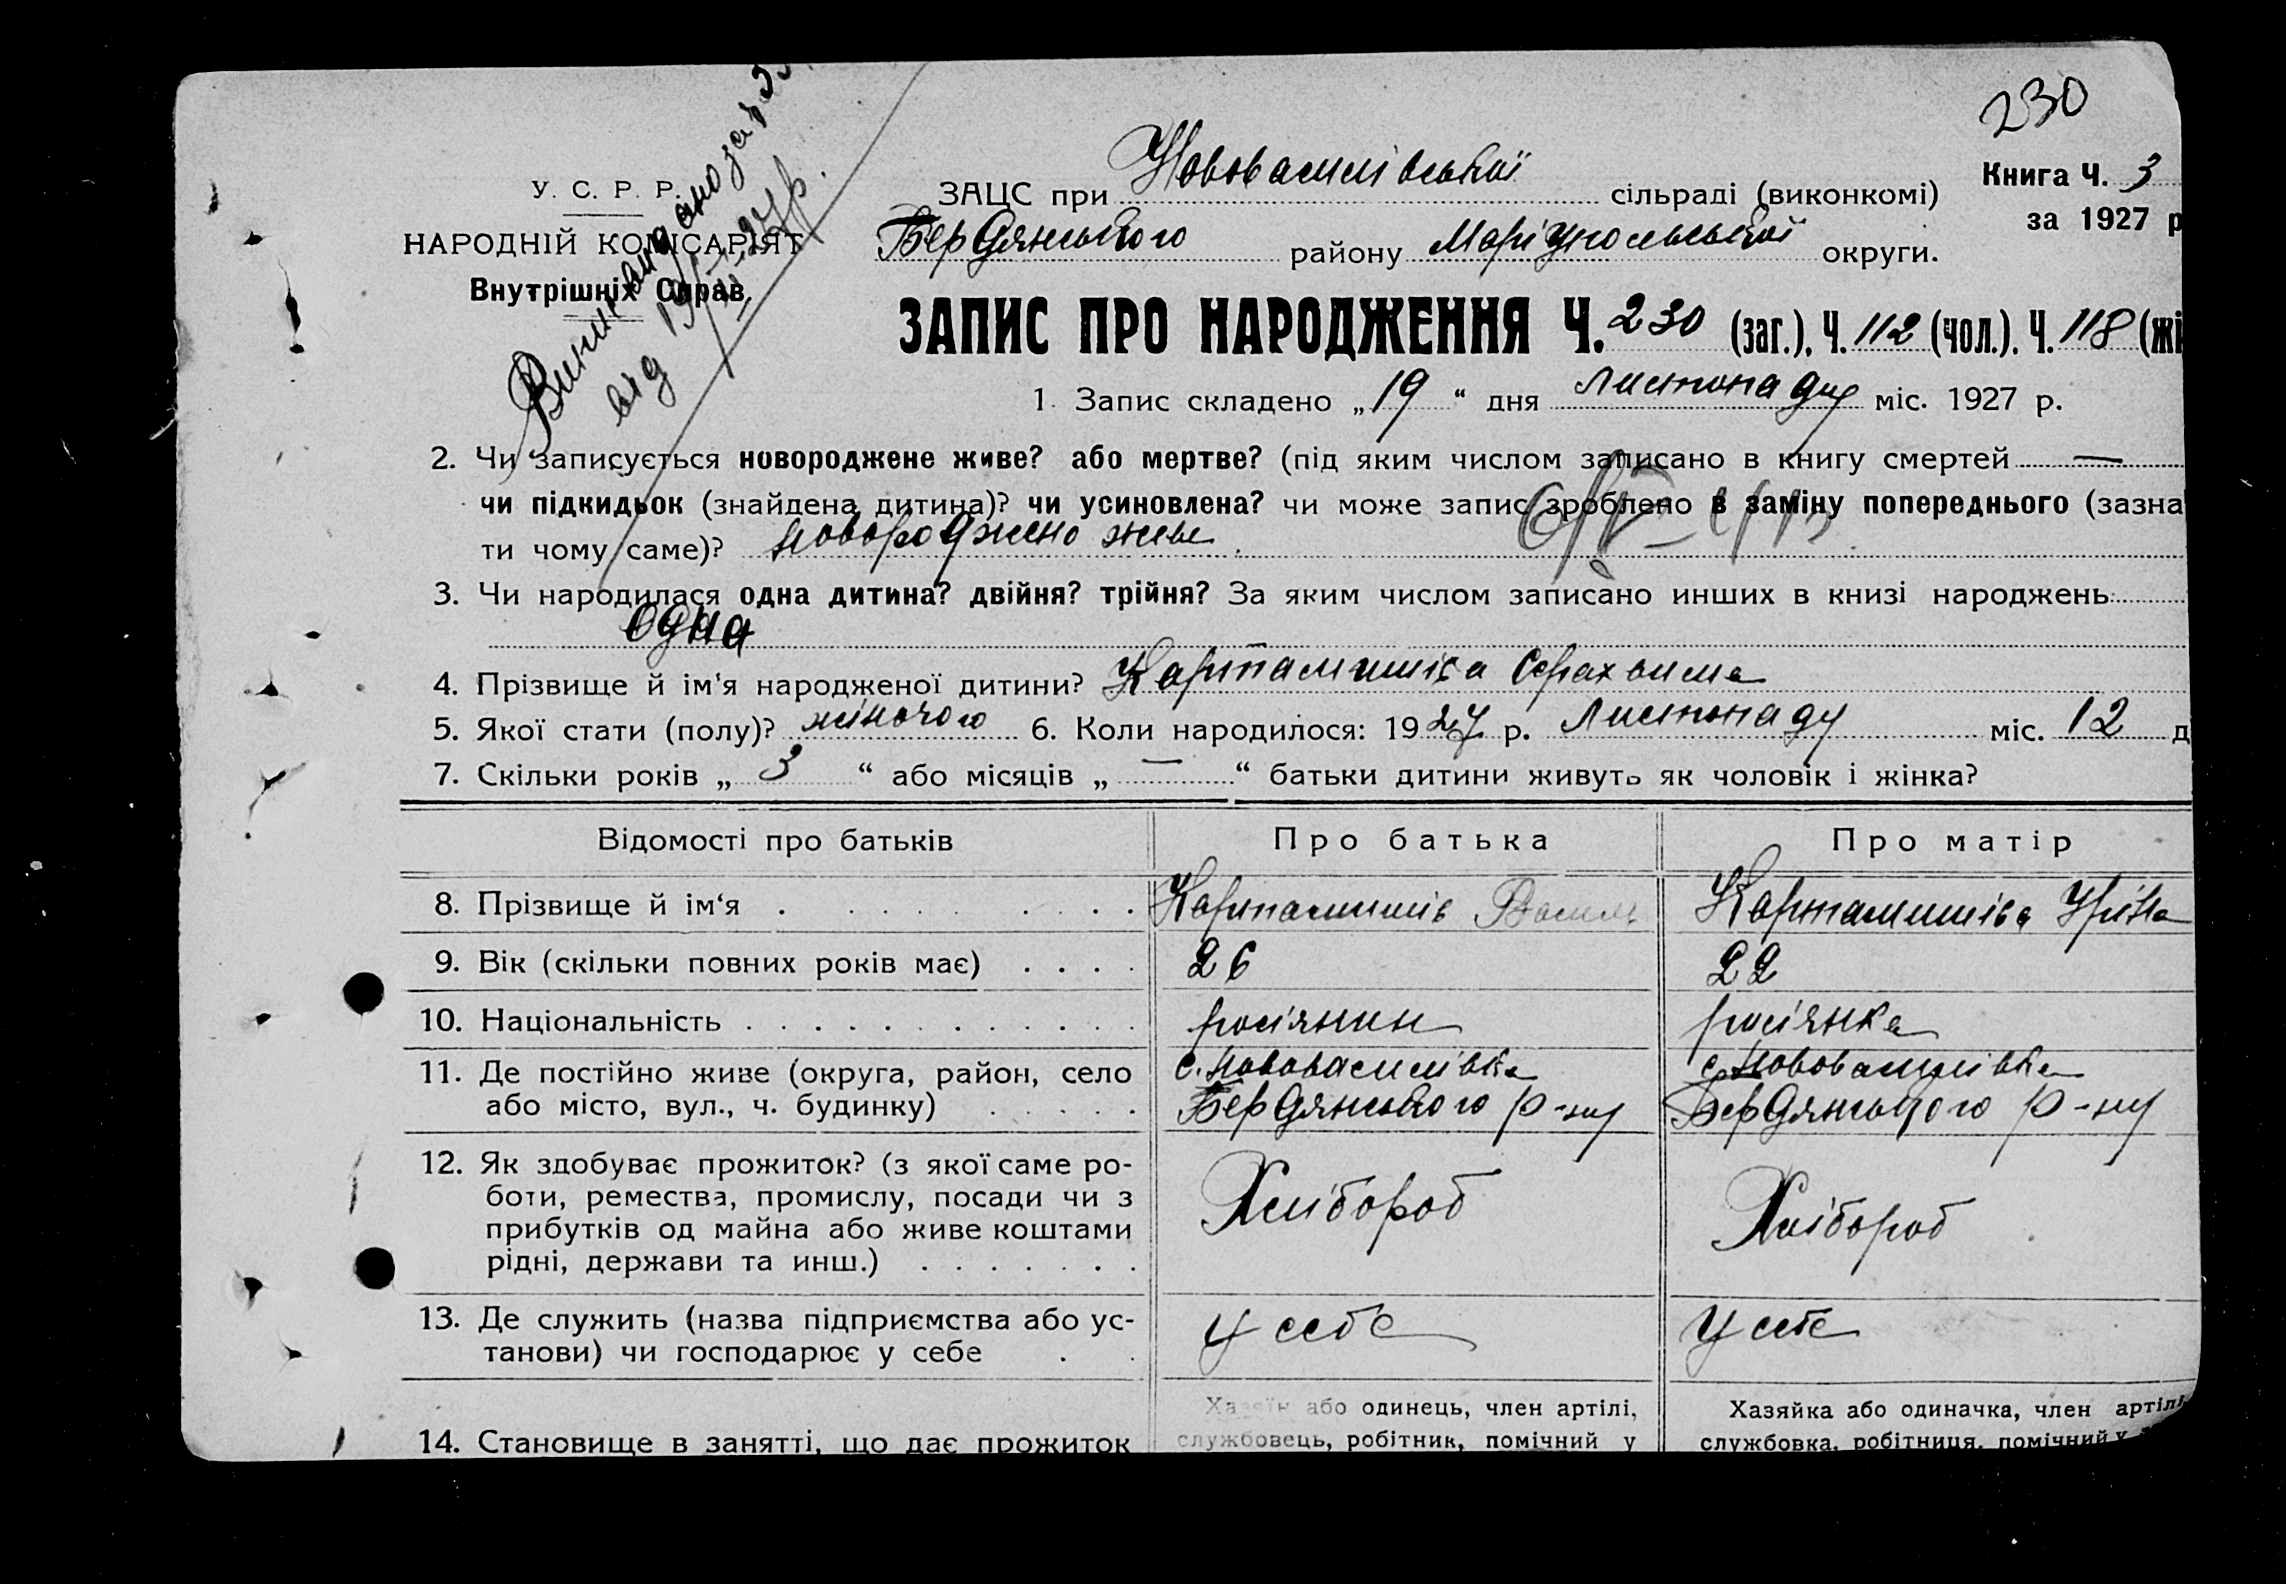 230
У. С. Р. Р.
НАРОДНІЙ КОМІСАРІЯТ
Внутрішніх Справ
від 19/XI-27р.
ЗАЦС при Нововасилівської сільраді (виконкомі)
Книга Ч. 3
Бердянського району Маріупольської округи.
за 1927 р
ЗАПИС ПРО НАРОДЖЕННЯ Ч. 230 (заг.), Ч. 112 (чол.). Ч. 118 (жі
1. Запис складено „19“ дня листопаду міс. 1927 р.
2. Чи записується новороджене живе? або мертве? (під яким числом записано в книгу смертей —
чи підкидьок (знайдена дитина)? чи усиновлена? чи може запис зроблено в заміну попереднього (зазна
ти чому саме)? новороджено живе
3. Чи народилася одна дитина? двійня? трійня? За яким числом записано инших в книзі народжень
одна
4. Прізвище й ім'я народженої дитини? Картамишіва
5. Якої стати (полу)? жіночого 6. Коли народилося: 1927 р. Листопаду міс. 12 д
7. Скільки років „ 3 “ або місяців „ — “ батьки дитини живуть як чоловік і жінка?
Відомості про батьків Про батька Про матір
8. Прізвище й ім‘я . . . . . . . . . Картамишів Василь Картамишіва Уріна
9. Вік (скільки повних років має) . . . . 26 22
10. Національність . . . . . . . . . . . . росіянин росіянка
11. Де постійно живе (округа, район, село с. Нововасилівка с. Нововасилівка
або місто, вул., ч. будинку) . . . . . Бердянського р-ну Бердянського р-ну
12. Як здобуває прожиток? (з якої саме ро-
боти, ремества, промислу, посади чи з Хлібороб Хлібороб
прибутків од майна або живе коштами
рідні, держави та инш.) . . . . . . .
13. Де служить (назва підприємства або ус- у себе у себе
танови) чи господарює у себе . .
Хазяїн або одинець, член артілі, Хазяйка або одиначка, член артілі
14. Становище в занятті, що дає прожиток службовець, робітник, помічний у службовка, робітниця, помічний у